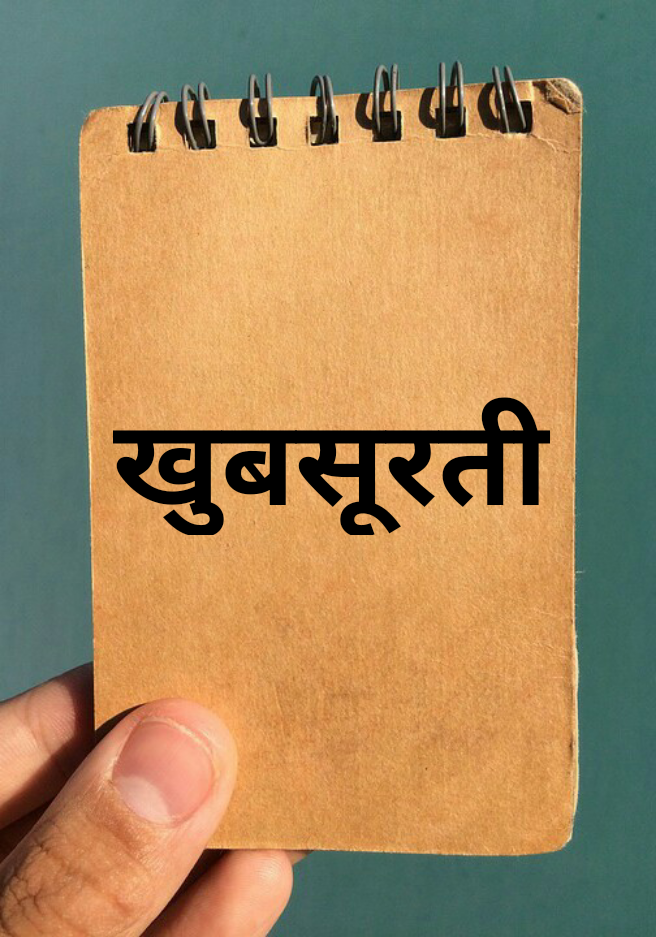 खुबसूरती